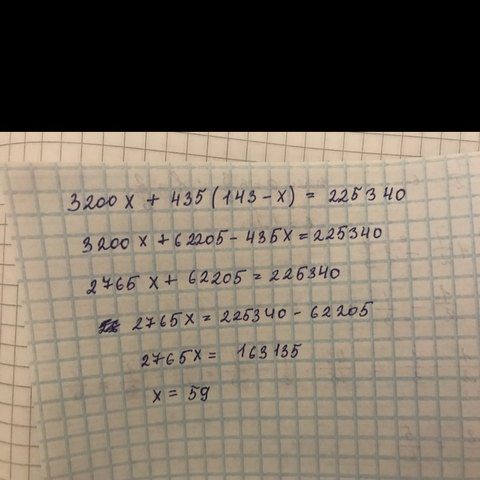 3200 x + 435 (143 - x) = 225340
3200 x + 62205 - 435x = 225340
2765 x + 62205 = 225340
2765x = 225340 - 62205
2765x = 163135
x = 59